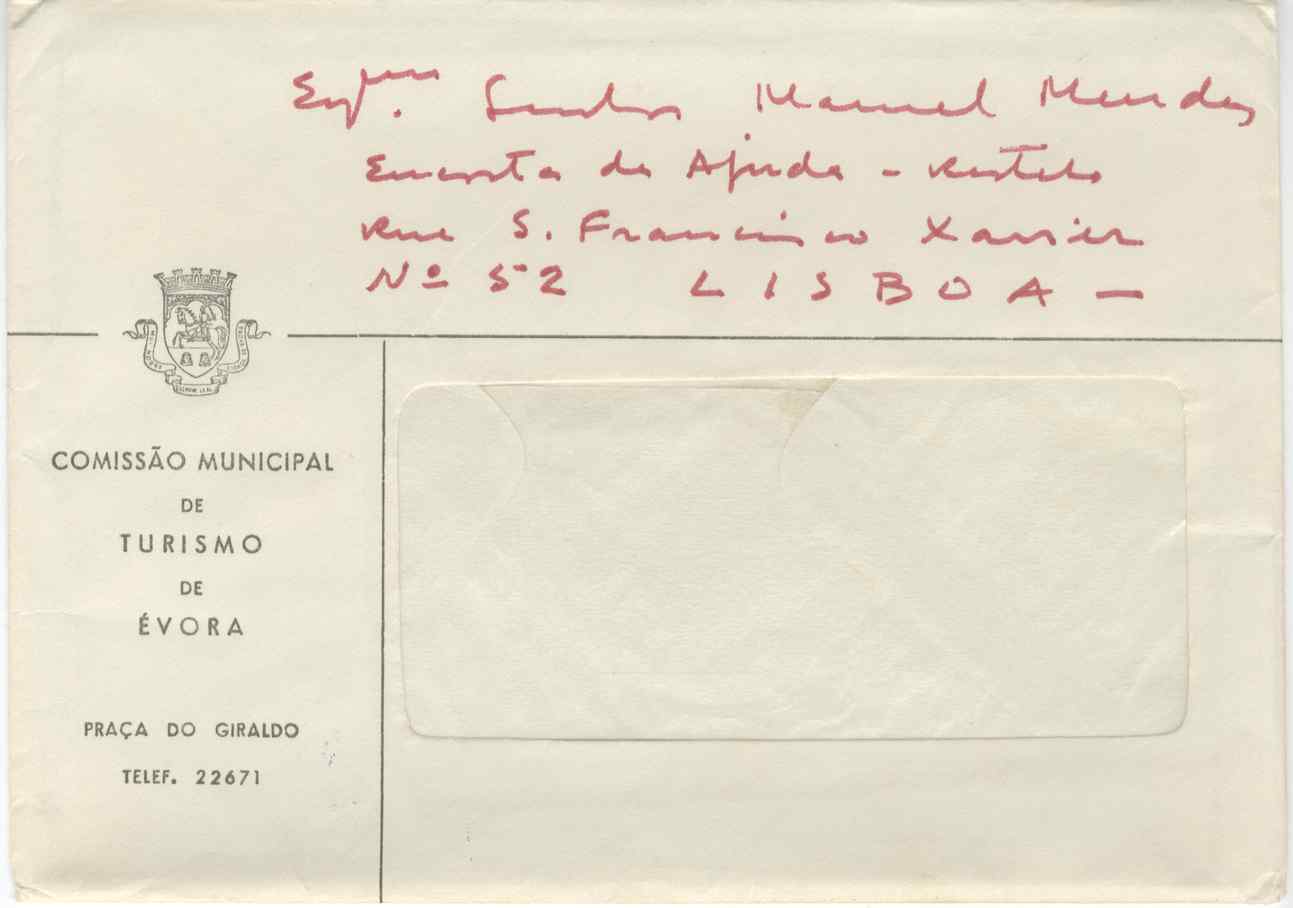 Exmº. Senhor Manuel Mendes
Encosta da Ajuda - Restelo
Rua S. Francisco Xavier
Nº 52 LISBOA -
COMISSÃO MUNICIPAL
DE
TURISMO
DE
ÉVORA
PRAÇA DO GIRALDO
TELEF. 22671